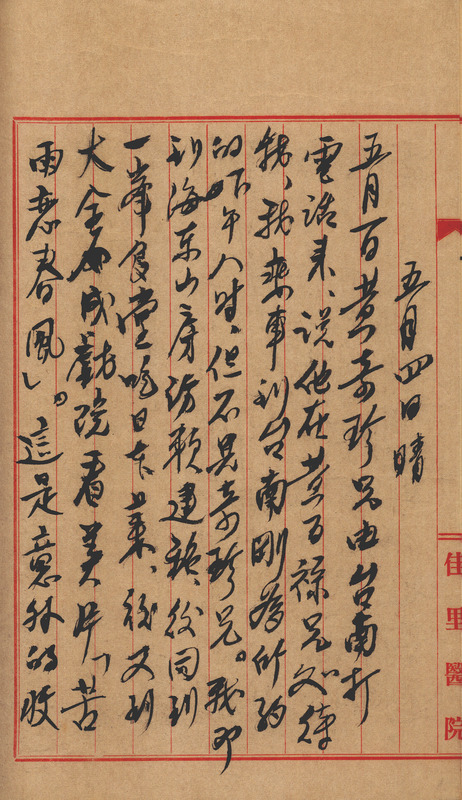 佳里醫院
五月四日晴
五月一日黃奇珍兄由台南打
電話來、說他在黃百祿兄処待
我、我乘車到台南剛為所約
的下午八时、但不見奇珍兄。我即
到海東山房訪建、後同到
一峯食堂吃日本菜、後又到
大全成戲院看美片「苦
雨恋春風」。這是意外的收